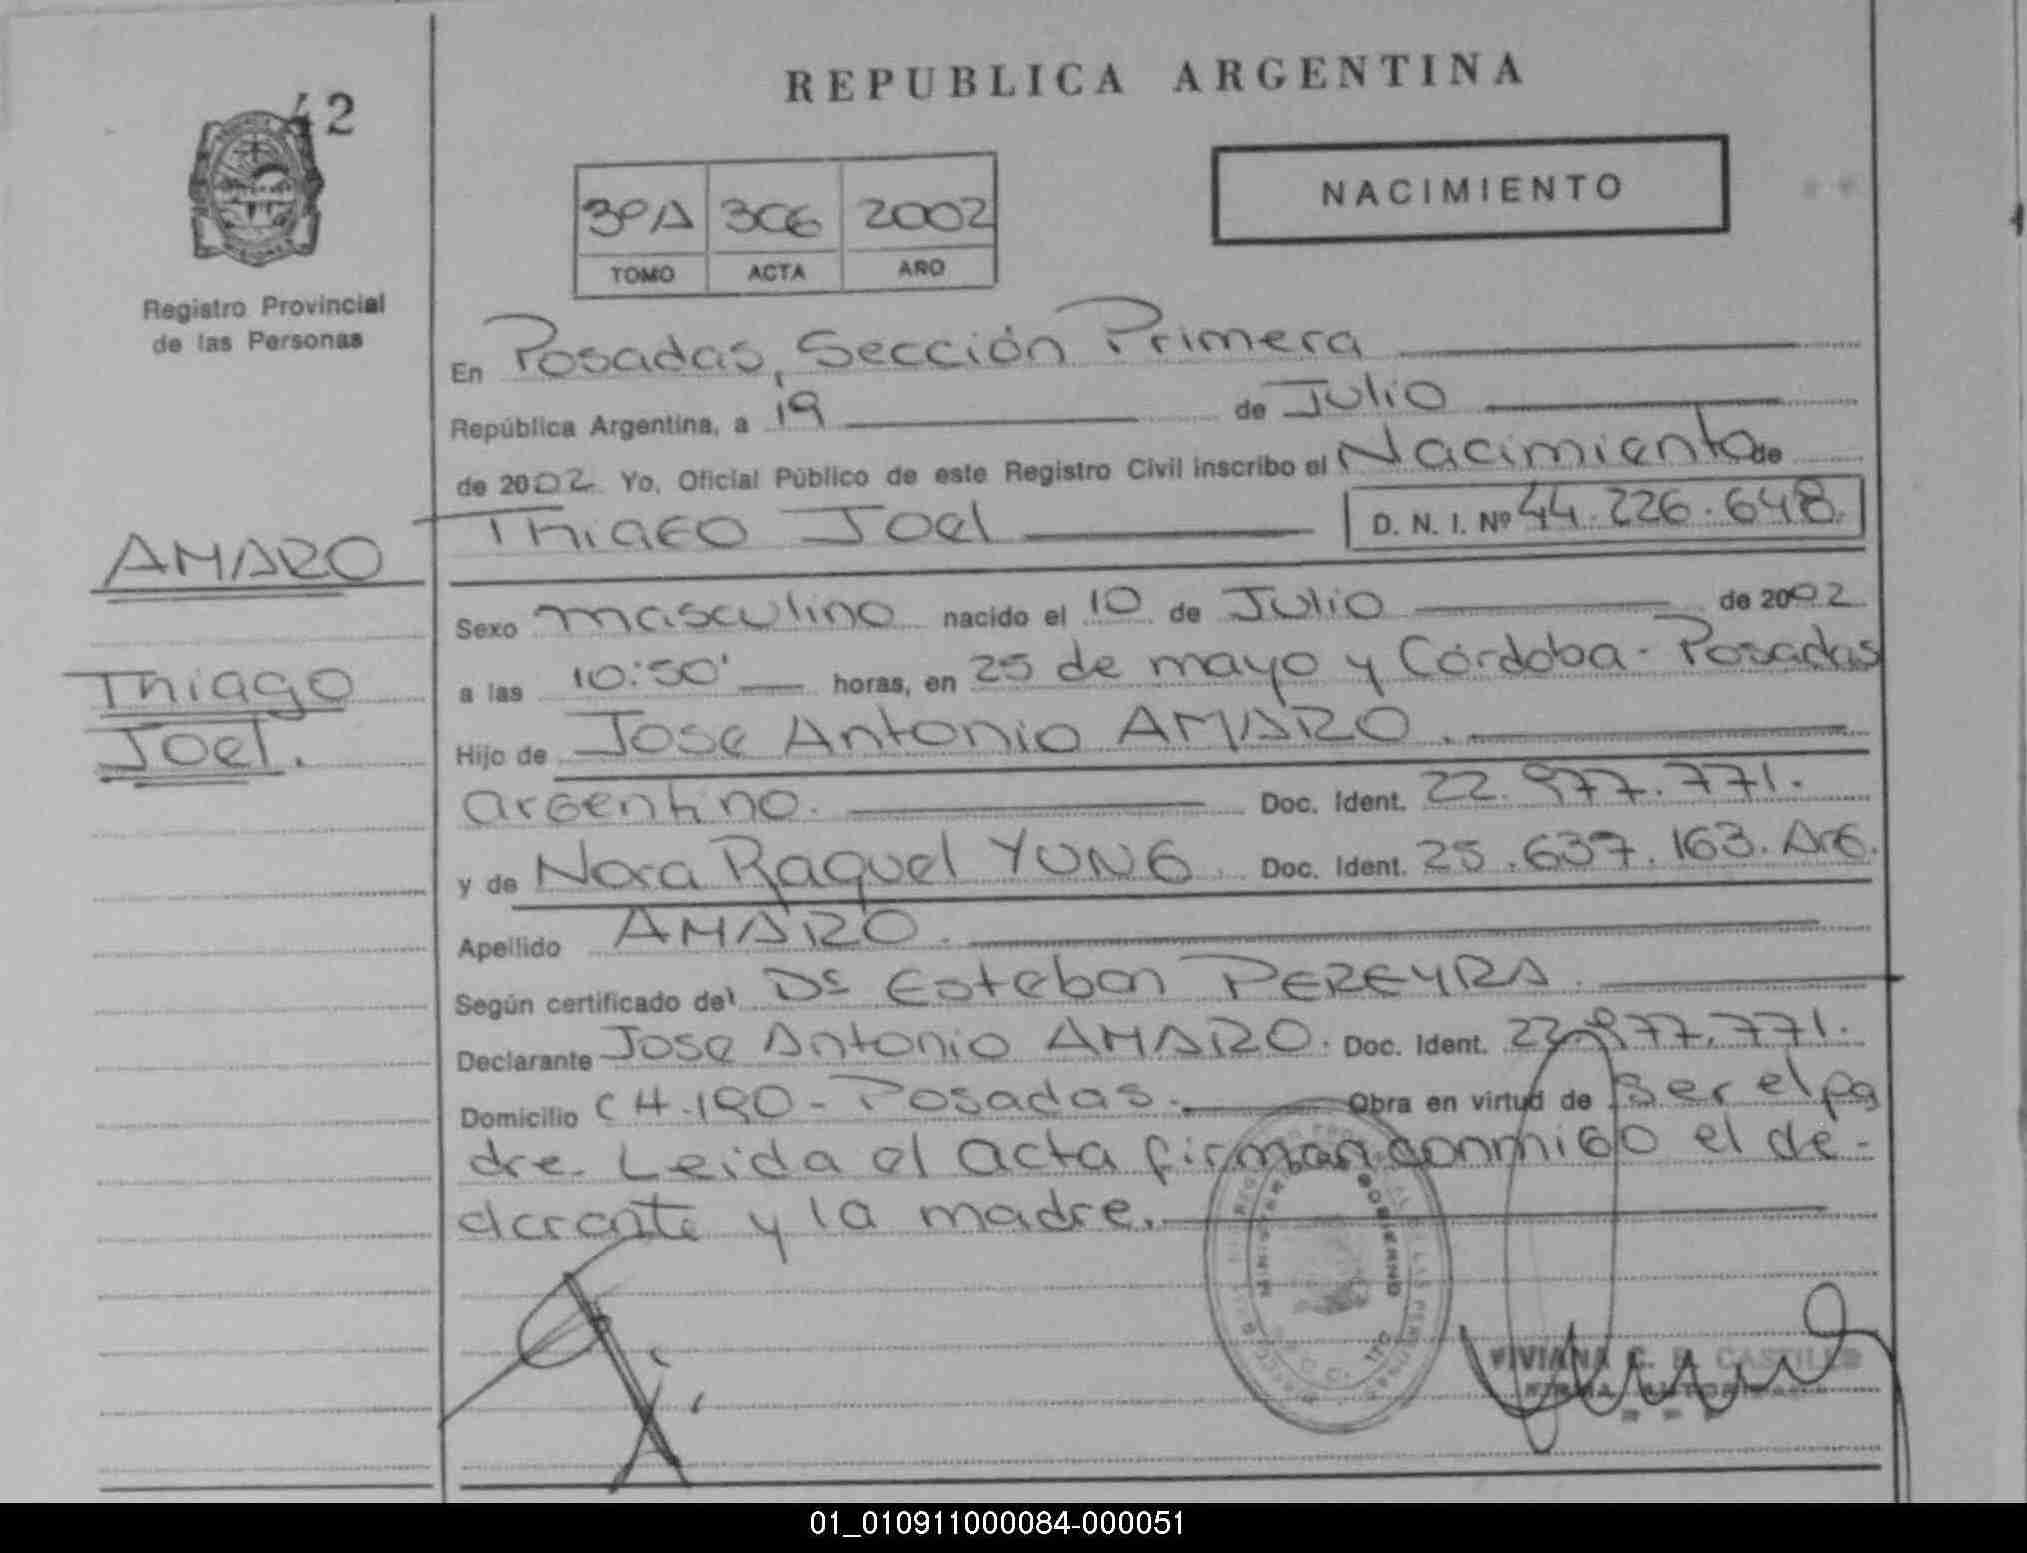 42
REPUBLICA ARGENTINA
NACIMIENTO
3ºA 306 2002
TOMO ACTA AÑO
Registro Provincial
de las Personas
En Posadas, Sección Primera
República Argentina, a 19 de Julio
de 2002 Yo, Oficial Público de este Registro Civil inscribo el Nacimiento de
Thiago Joel D. N. I. Nº 44.226.648.
AMARO
Thiago
Joel.
Sexo masculino nacido el 10 de Julio de 2002
a las 10:50' horas, en 25 de mayo y Córdoba - Posadas
Hijo de Jose Antonio AMARO.
argentino. Doc. Ident. 22.977.771.
y de Nora Raquel YUNG Doc. Ident. 25.637.163. Arg.
Apellido AMARO.
Según certificado del Dr Esteban PEREYRA.
Declarante Jose Antonio AMARO. Doc. Ident. 22.977.771.
Domicilio CH.190 - Posadas. Obra en virtud de ser el pa
dre. Leida el acta firman conmigo el de-
clarante y la madre.
MINISTERIO GOBIERNO
VIVIANA CASTILLO
FIRMA AUTORIZADA
01_010911000084-000051